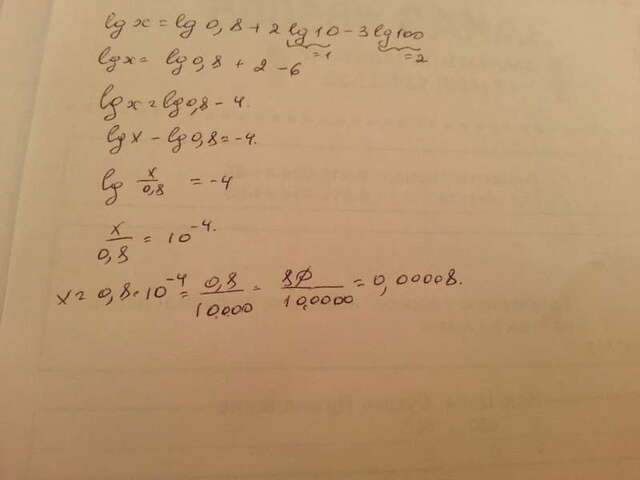 lg x = lg 0,8 + 2 lg 10 - 3 lg 100
=1 =2
lg x = lg 0,8 + 2 - 6
lg x = lg 0,8 - 4.
lg x - lg 0,8 = -4.
lg x/0,8 = -4
x/0,8 = 10^-4.
x = 0,8 · 10^-4 = 0,8/10000 = 8/100000 = 0,00008.